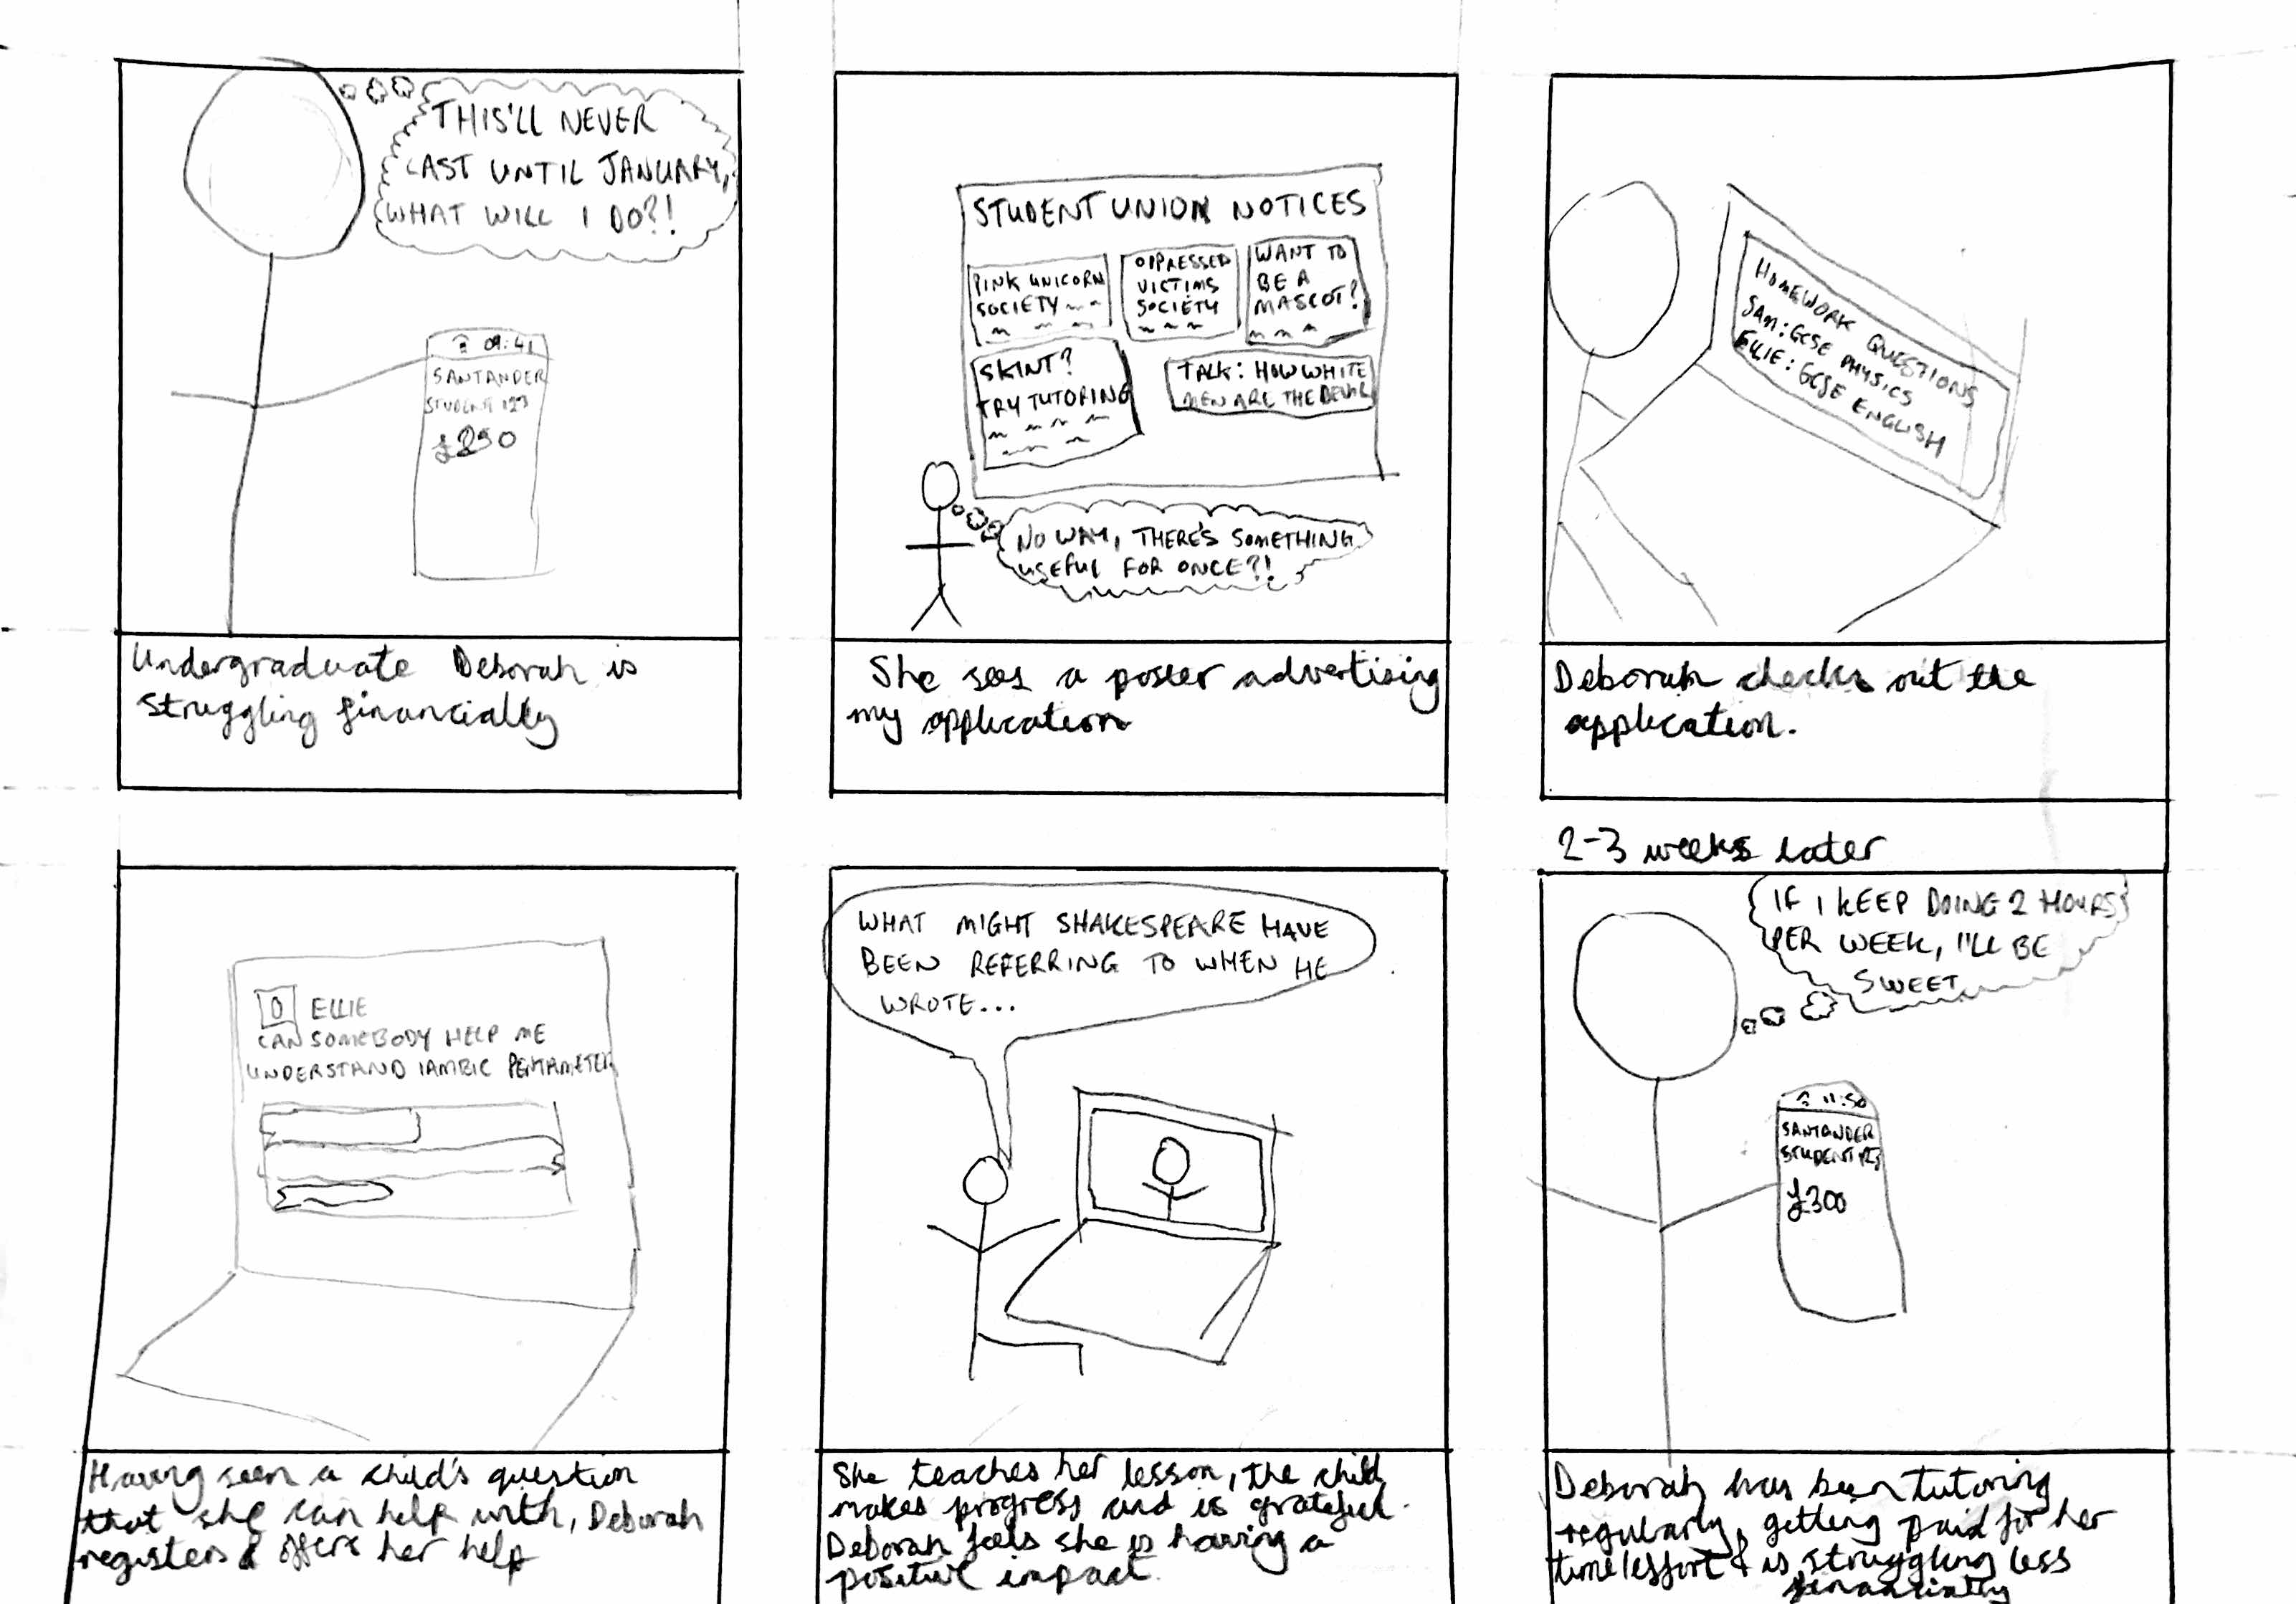 THIS'LL NEVER
LAST UNTIL JANUARY,
WHAT WILL I DO?!
09:41
SANTANDER
STUDENT 123
£250
Undergraduate Deborah is
struggling financially
STUDENT UNION NOTICES
PINK UNICORN
SOCIETY
OPPRESSED
VICTIMS
SOCIETY
WANT TO
BE A
MASCOT?
SKINT?
TRY TUTORING
TALK: HOW WHITE
MEN ARE THE DEVIL
NO WAY, THERE'S SOMETHING
USEFUL FOR ONCE?!
She sees a poster advertising
my application
HOMEWORK QUESTIONS
SAM: GCSE PHYSICS
ELLIE: GCSE ENGLISH
Deborah checks out the
application.
ELLIE
CAN SOMEBODY HELP ME
UNDERSTAND IAMBIC PENTAMETER
Having seen a child's question
that she can help with, Deborah
registers & offers her help
WHAT MIGHT SHAKESPEARE HAVE
BEEN REFERRING TO WHEN HE
WROTE...
She teaches her lesson, the child
makes progress and is grateful.
Deborah feels she is having a
positive impact.
2-3 weeks later
IF I KEEP DOING 2 HOURS
PER WEEK, I'LL BE
SWEET
11:50
SANTANDER
STUDENT 123
£300
Deborah has been tutoring
regularly, getting paid for her
time/effort & is struggling less
financially